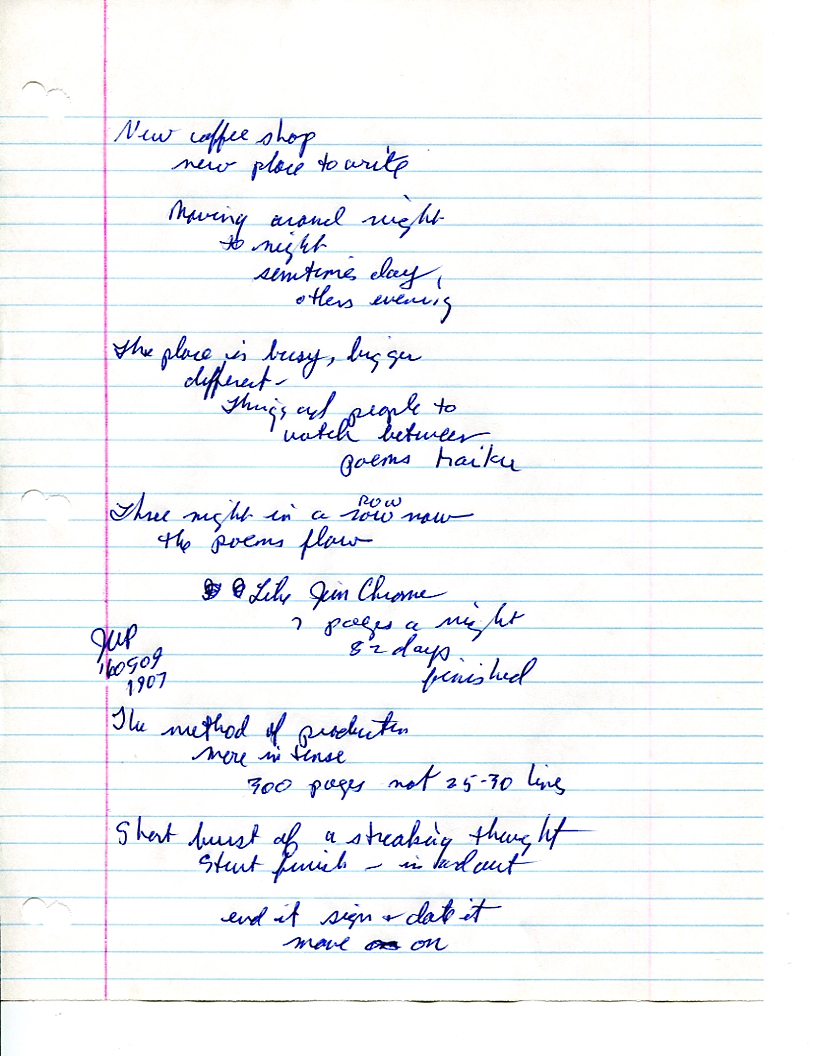 New coffee shop
new place to write
Moving around night
to night
sometimes day,
others evening
The place is busy, bigger
different-
Things and people to
watch between
poems haiku
Three night in a row now
ROW
the poems flow
Like Jim Chrome
7 pages a night
82 days
finished
JWP
160909
1907
The method of production
more intense
300 pages not 25-30 lines
Short burst of a streaking thought
Start finish - in and out
end it sign + date it
move on